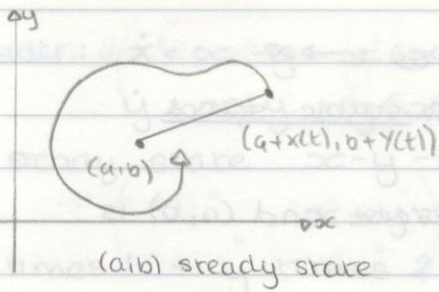 y
(a+x(t), b+y(t))
(a,b)
x
(a,b) steady state